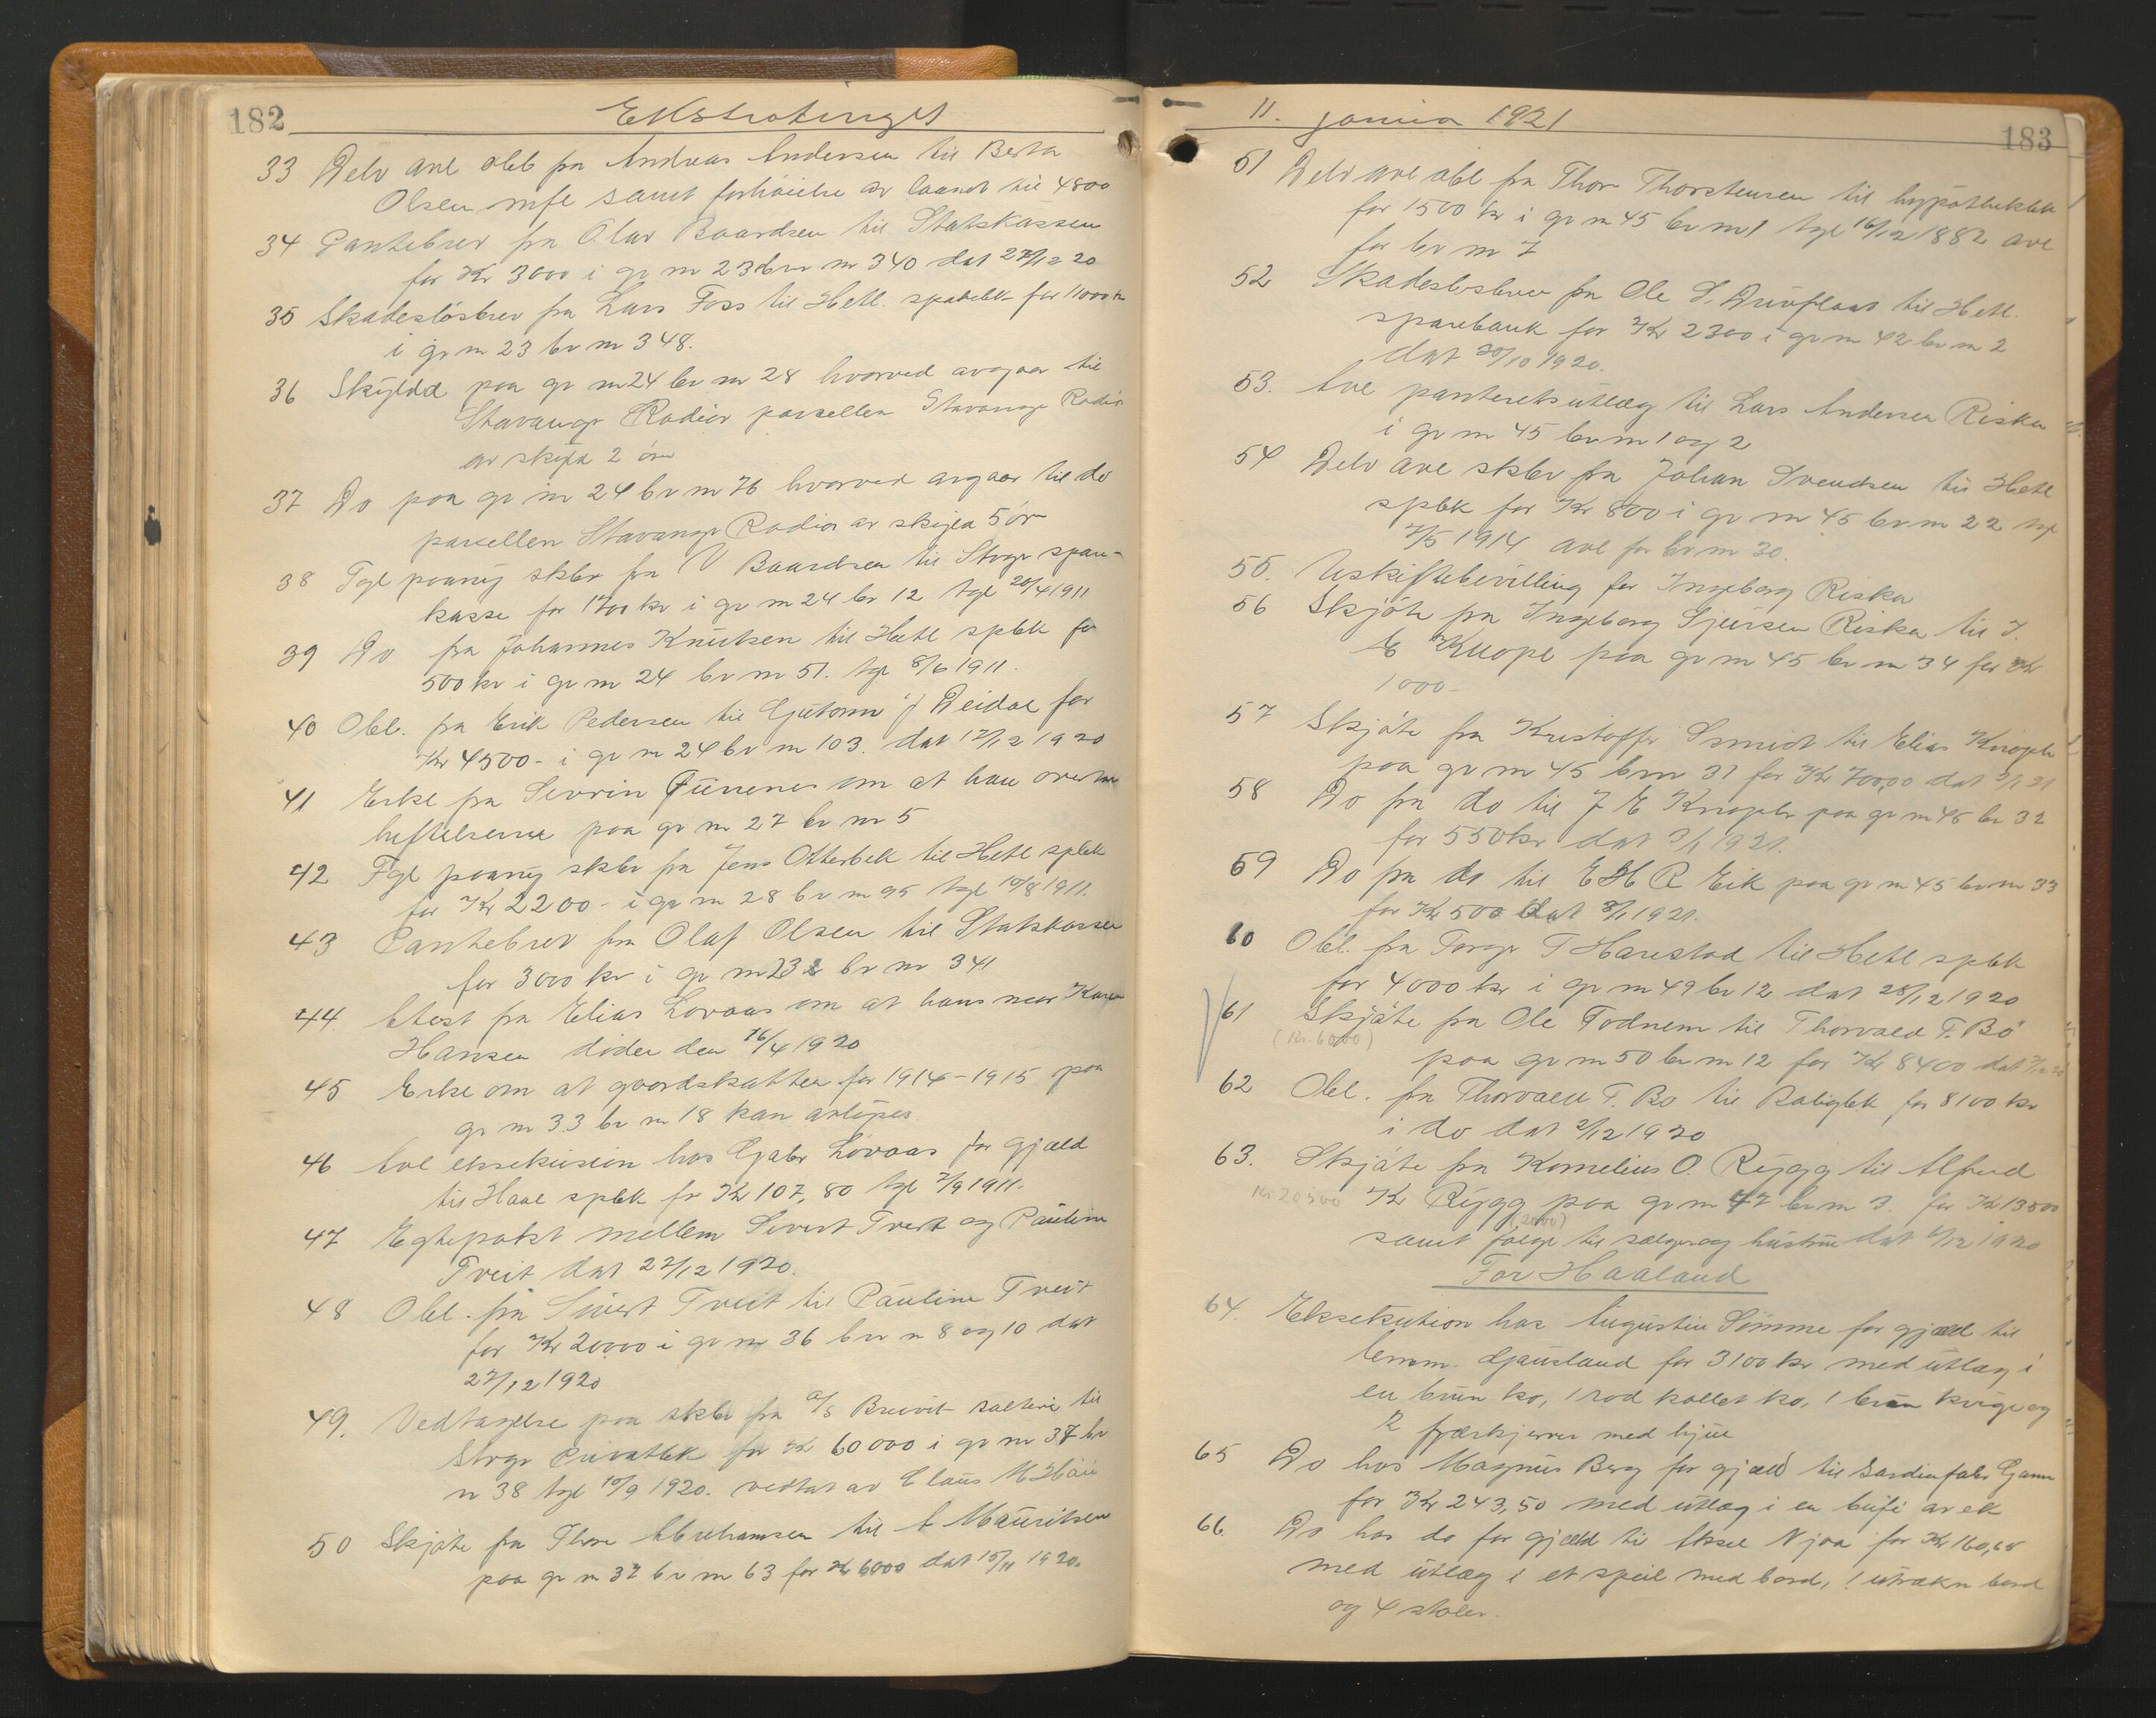 182
Ekstratinget
33 Delv avl obl fra Andreas Andersen til Berta
Olsen mfl samt forhöielse av laanet til 4800
34 Pantebrev fra Olav Baardsen til Statskassen
for Kr 3000 i gr nr 23 br nr 340 dat 27/12 20
35 Skadeslösbrev fra Lars Foss til Hetl. sparebk for 11000 kr
i gr nr 23 br nr 348.
36 Skyldd paa gr nr 24 br nr 28 hvorved avgaar til
Stavanger Radio parcellen Stavanger Radio
av skyld 2 öre
37 Do paa gr nr 24 br nr 76 hvorved avgaar til do
parcellen Stavanger Radio av skyld 5 ör
38 Tgl paany skbr fra V Baardsen til Stvgr spare-
kasse for 1700 kr i gr nr 24 br 12 tgl 20/4 1911
39 Do fra Johannes Knutsen til Hetl spbk for
500 kr i gr nr 24 br nr 51. tgl 8/6 1911.
40 Obl. fra Erik Pedersen til Gutorm J Veidal for
Kr 4500- i gr nr 24 br nr 103. dat 17/12 1920
41 Erkl fra Sevrin om at han overtar
heftelserne paa gr nr 27 br nr 5
42 Tgl paany skbr fra Jens Otterbek til Hetl spbk
for Kr 2200- i gr nr 28 br nr 95 tgl 10/8 1911.
43 Pantebrev fra Olaf Olsen til Statskassen
for 3000 kr i gr nr 23 br nr 341
44 Atest fra Elias Lovaas om at hans mor Karen
Hansen döde den 16/4 1920
45 Erkl om at gaardskatten for 1914-1915 paa
gr nr 33 br nr 18 kan avlöses
46 Avl eksekusion hos Gabr Lövaas for gjæld
til Haal spbk for Kr 107,80 tgl 7/9 1911.
47 Egtepakt mellem Sivert Tveit og Pauline
Tveit dat 27/12 1920.
48 Obl. fra Sivert Tveit til Pauline Tveit
for Kr 20000 i gr nr 36 br nr 8 og 10 dat
27/12 1920
49. Vedtagelse paa skbr fra A/S Breivik salteri til
Stvgr Privatbk for Kr 60000 i gr nr 37 br
nr 38 tgl 10/9 1920. vedtat av Claus
50 Skjöte fra Thore Abrahamsen til A Mauritsen
paa gr nr 37 br nr 63 for Kr 6000 dat 15/11 1920.
11. januar 1921
183
51 Delv avl obl fra Thor Thorstensen til hypothekbk
for 1500 kr i gr nr 45 br nr 1 tgl 16/12 1882 avl
for br nr 7
52 Skadeslosbrev fra Ole S. til Hetl.
sparebank for Kr 2300 i gr nr 42 br nr 2
dat 30/10 1920.
53. Avl panteretsutlæg til Lars Andersen Riska
i gr nr 45 br nr 1 og 2
54 Delv avl skbr fra Johan Svendsen til Hetl
spbk for Kr 800 i gr nr 45 br nr 22 tgl
7/5 1914 avl for br nr 30.
55. Uskiftebevilling for Ingeborg Riska
56 Skjöte fra Ingeborg Sjursen Riska til J.
E Knoph paa gr nr 45 br nr 34 for Kr
1000-
57 Skjöte fra Kristoffer Smidt til Elias Knoph
paa gr nr 45 br nr 31 for Kr 700,00 dat 3/1 21
58 Do fra do til J E Knoph paa gr nr 45 br 32
for 550 kr dat 3/1 1921.
59 Do fra do til E H R Eik paa gr nr 45 br nr 33
for Kr 500 dat 3/1 1921.
60 Obl. fra Torger T Harestad til Hetl spbk
for 4000 kr i gr nr 49 br 12 dat 28/12 1920
61 Skjöte fra Ole Todnem til Thorvald T. Bö
(Kr. 6000)
paa gr nr 50 br nr 12 for Kr 8400 dat 2/12 20
62 Obl. fra Thorvald T. Bö til for 8100 kr
i do dat 2/12 1920
63. Skjöte fra Kornelius O. Rygg til Alfred
Kr 20500 K Rygg paa gr nr 47 br nr 3. for Kr 13500
(2000)
samt folge til sælger og hustru dat 6/12 1920
For Haaland
64. Eksekution hos Augustin Sömme for gjæld til
lensm. Gausland for 3100 kr med utlæg i
en brun ko, 1 rod kollet ko, 1 brun kvige og
2 fjærkjerrer med hjul
65 Do hos Magnus Berg for gjæld til Sardinfabr Gann
for Kr 243,50 med utlæg i en bufe av ek
66. Do hos do for gjæld til Aksel Njaa for Kr 160,68
med utlæg i et speil med bord, 1 utrækn bord
og 4 stoler.